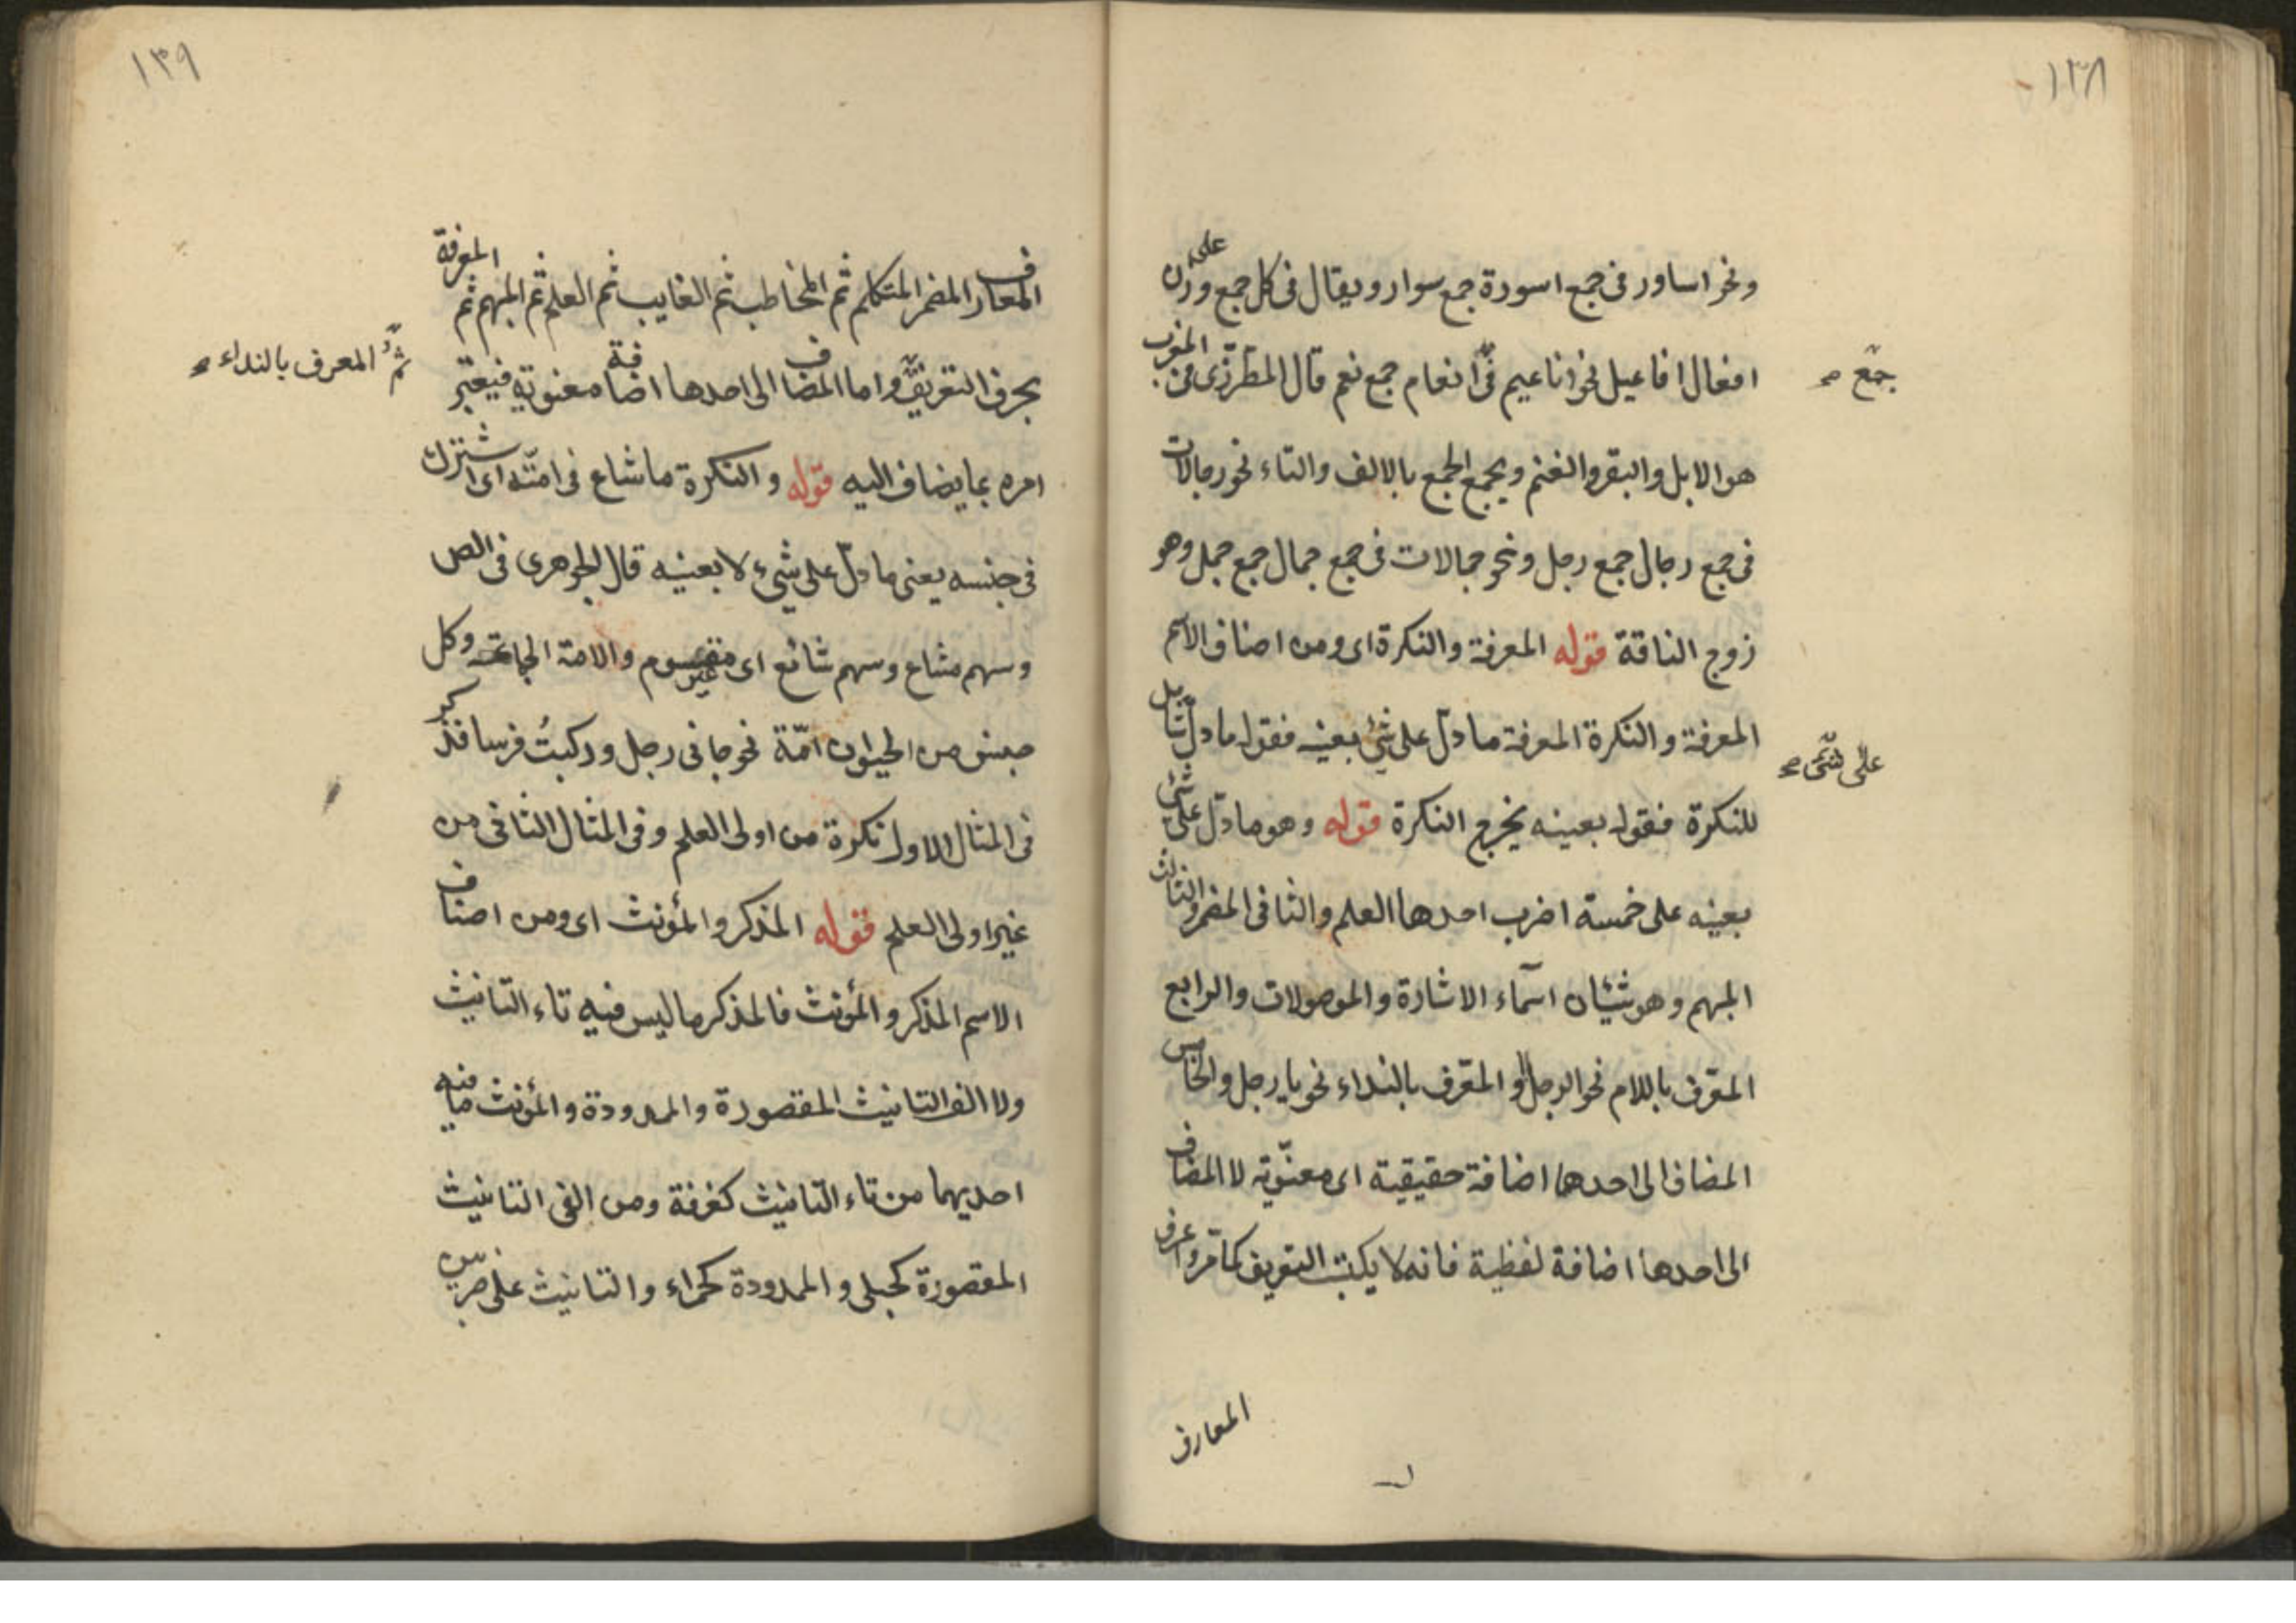 ١٣٨
ونحو اساور فى جمع اسورة جمع سوار ويقال فى كل جمع على وزن
افعال افاعيل نحو اناعيم فى انعام جمع نعم قال المطرزى فى المغرب
جمع صح
هو الابل والبقر والغنم ويجمع الجمع بالالف والتاء نحو رجالات
فى جمع رجال جمع رجل ونحو جمالات فى جمع جمال جمع جمل وهو
زوج الناقة قوله المعرفة والنكرة اى ومن اصناف الاسم
المعرفة والنكرة المعرفة ما دلّ على شئ بعينه فقوله ما دلّ شامل
على شئ صح
للنكرة فقوله بعينه يخرج النكرة قوله وهو ما دلّ على شئ
بعينه على خمسة اضرب احدها العلم والثانى المضمر والثالث
المبهم وهو شيئان اسماء الاشارة والموصولات والرابع
المعرّف باللام نحو الرجل او المعرّف بالنداء نحو يا رجل والخامس
المضاف الى احدها اضافة حقيقية اى معنويّة لا المضاف
الى احدها اضافة لفظية فانه لا يكتب التعريف كما مرّ واعرف
المعارف
١٣٩
المعارف المضمر المتكلم ثم المخاطب ثم الغايب ثم العلم ثم المبهم ثم المعرفة
بحرف التعريف واما المضاف الى احدها اضافة معنوية فيعتبر
ثم المعرف بالنداء صح
امره بما يضاف اليه قوله والنكرة ما شاع فى امّته اى اشترك
فى جنسه يعنى ما دلّ على شئ لا بعينه قال الجوهرى فى الص
وسهم مشاع وسهم شائع اى غير مقسوم والامة الجماعة وكل
جنس من الحيوان امّة نحو جانى رجل وركبتُ فرسا فذكر
فى المثال الاول نكرة من اولى العلم وفى المثال الثانى من
غير اولى العلم قوله المذكر والمؤنث اى ومن اصناف
الاسم المذكر والمؤنث فالمذكر ما ليس فيه تاء التانيث
ولا الف التانيث المقصورة والممدودة والمؤنث ما فيه
احديهما من تاء التانيث كغرفة ومن الفى التانيث
المقصورة كحبلى والممدودة كحمراء والتانيث على ضربين